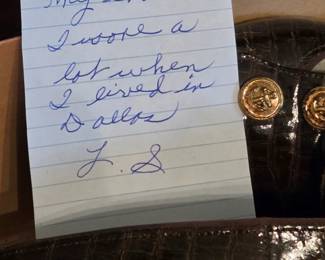 I wore a
lot when
I lived in
Dallas
L. S